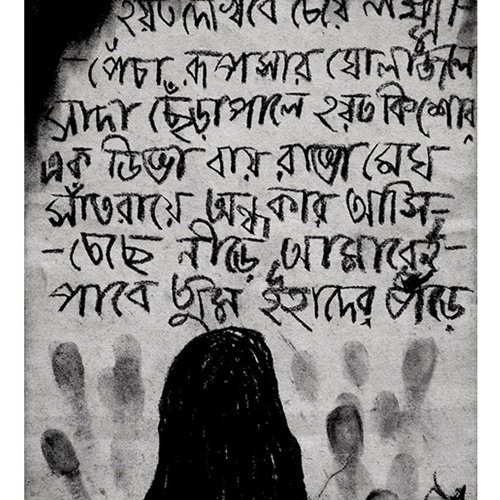 হয়ত দেখিবে চেয়ে লক্ষ্মী-
-পেঁচা রূপসার ঘোলা জলে
সাদা ছেঁড়া পালে হয়ত কিশোর
এক ডিঙা বায় রাঙা মেঘ
সাঁতরায়ে অন্ধকার আসি-
-তেছে নীড়ে আমারেই-
পাবে তুমি ইহাদের ভীড়ে